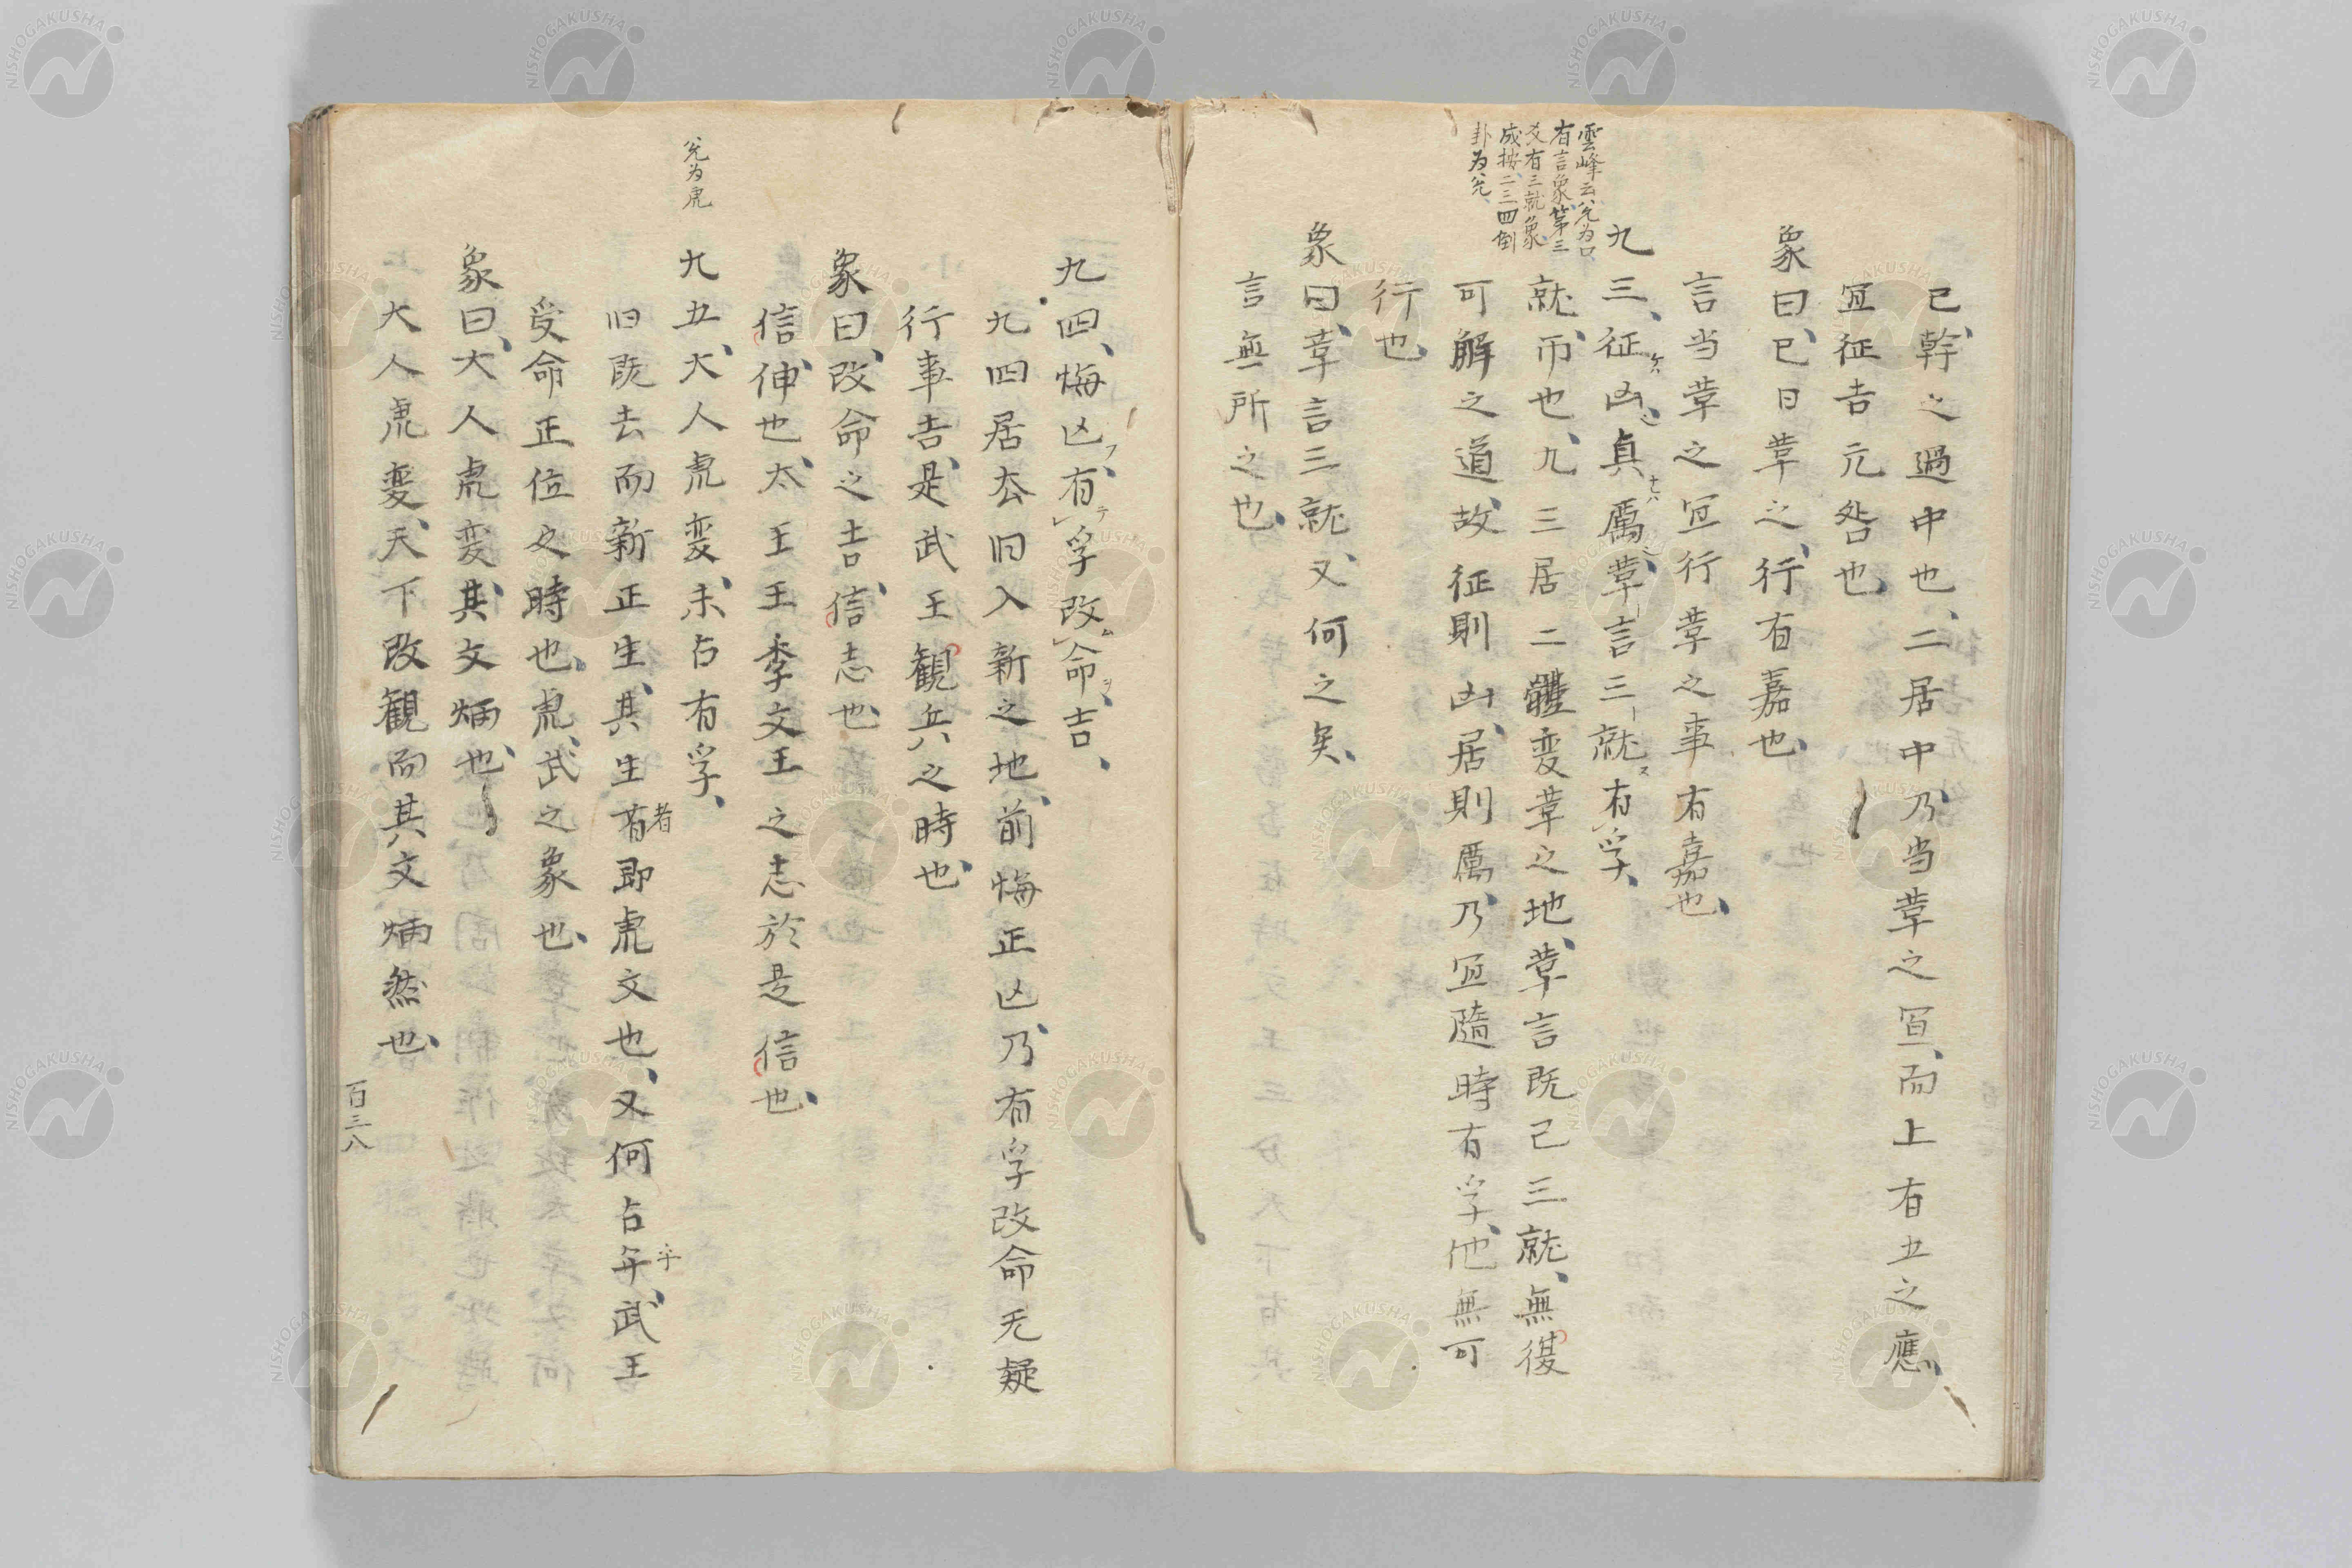 雲峰云兌為口
有言象第三
爻有三就象
成按二三四倒
卦为兌
已幹之過中也、二居中乃当革之冝、而上有五之應、
冝征吉元咎也、
象曰、已日革之、行有嘉也、
言当革之冝行革之事有嘉也、
九三、征凶、貞厲、革言三就有孚、
就、帀也、九三居二體変革之地、革言既已三就、無復
可解之道、故征則凶、居則厲、乃冝隨時有孚、他無可
行也、
象曰、革言三就、又何之矣、
言無所之也、
九四、悔亾、有孚改命、吉、
九四居去旧入新之地、前悔正亾、乃有孚改命无疑
行事吉、是武王観兵之時也、
象曰、改命之吉、信志也、
信、伸也、太王王季文王之志於是信也、
兌为虎
九五、大人虎変、未占有孚、
旧既去而新正生、其生者即虎文也、又何占乎、武王
受命正位之時也、虎、武之象也、
象曰、大人虎変、其文炳也、
大人虎変、天下改観而其文炳然也、
百三八